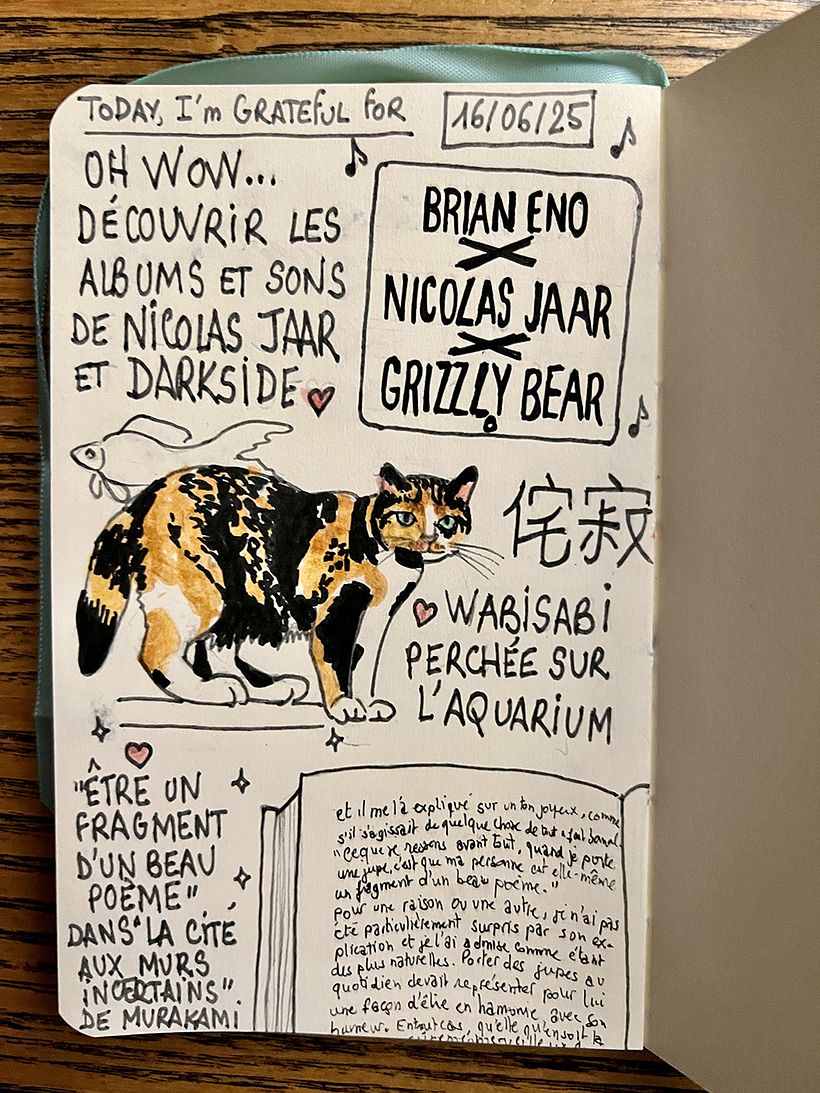 TODAY, I'm GRATEFUL FOR
16/06/25
OH WOW...
DÉCOUVRIR LES
ALBUMS ET SONS
DE NICOLAS JAAR
ET DARKSIDE
BRIAN ENO
X
NICOLAS JAAR
X
GRIZZLY BEAR
侘寂
WABISABI
PERCHÉE SUR
L'AQUARIUM
"ÊTRE UN
FRAGMENT
D'UN BEAU
POÈME"
DANS "LA CITÉ
AUX MURS
INCERTAINS"
DE MURAKAMI
et il me l'a expliqué sur un ton joyeux, comme
s'il s'agissait de quelque chose de tout à fait banal.
"Ce que je ressens avant tout, quand je porte
une jupe, c'est que ma personne est elle-même
un fragment d'un beau poème."
pour une raison ou une autre, je n'ai pas
été particulièrement surpris par son ex-
plication et je l'ai admise comme étant
des plus naturelles. Porter des jupes au
quotidien devait représenter pour lui
une façon d'être en harmonie avec son
humeur. En tout cas, qu'elle qu'en soit la